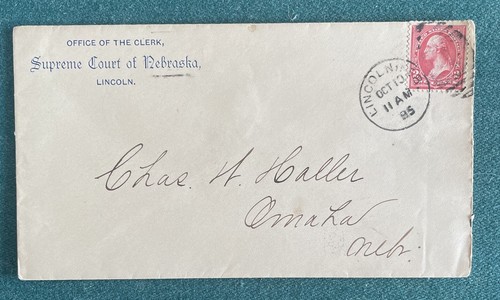 OFFICE OF THE CLERK,
Supreme Court of Nebraska,
LINCOLN.
LINCOLN,
OCT 13
11 AM
95
Chas. W. Haller
Omaha
Nebr.